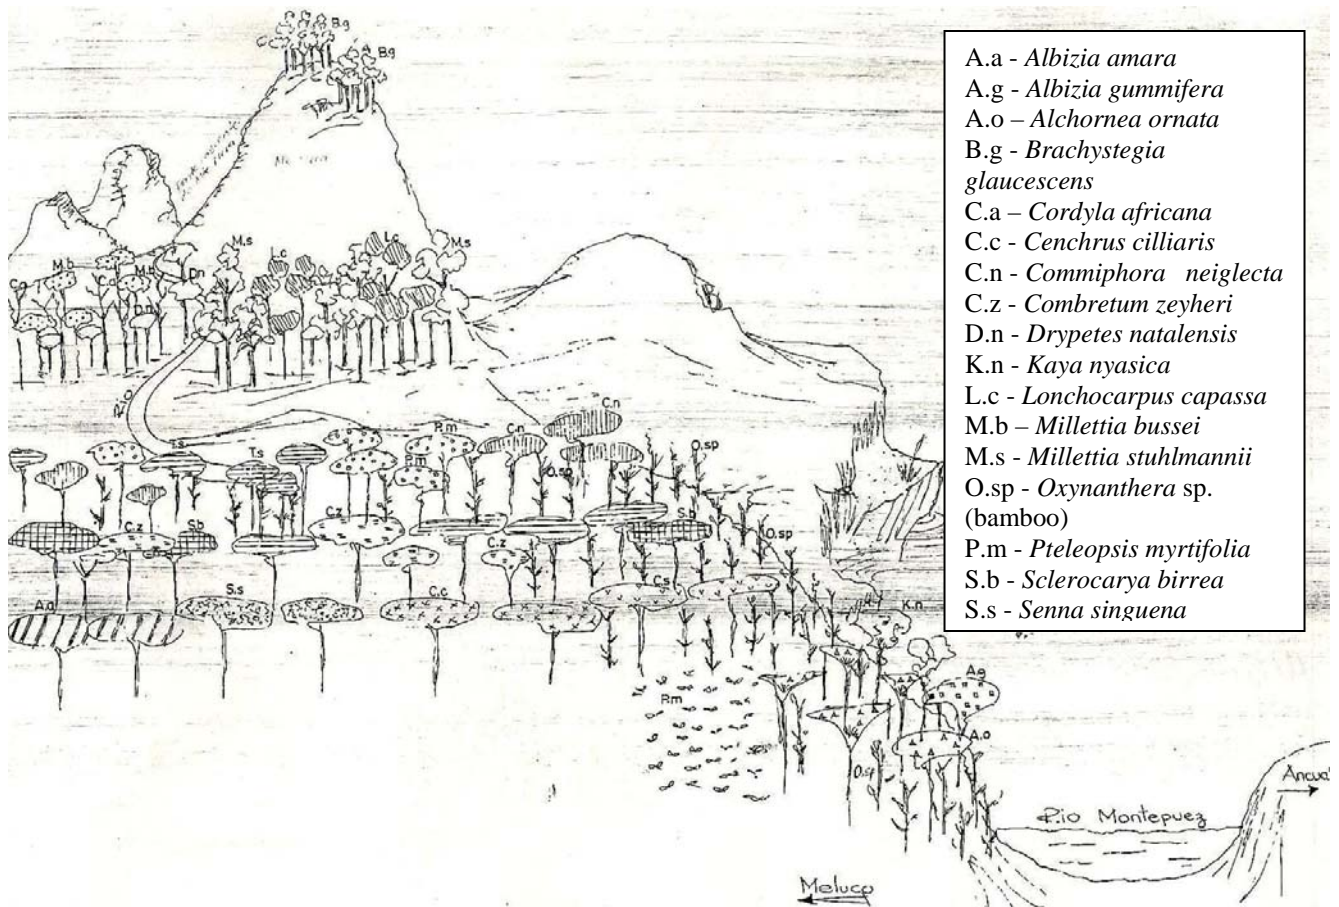 B.g
B.g
A.a - Albizia amara
A.g - Albizia gummifera
A.o – Alchornea ornata
B.g - Brachystegia
glaucescens
C.a – Cordyla africana
C.c - Cenchrus cilliaris
C.n - Commiphora neiglecta
C.z - Combretum zeyheri
D.n - Drypetes natalensis
K.n - Kaya nyasica
L.c - Lonchocarpus capassa
M.b – Millettia bussei
M.s - Millettia stuhlmannii
O.sp - Oxynanthera sp.
(bamboo)
P.m - Pteleopsis myrtifolia
S.b - Sclerocarya birrea
S.s - Senna singuena
M.s
L.c
M.s
M.b
M.b
D.n
Rio
C.n
P.m
C.n
O.sp
T.s
T.s
P.m
O.sp
C.z
S.b
C.z
S.b
C.z
O.sp
S.s
C.c
C.s
K.n
P.m
A.g
A.o
O.sp
Rio Montepuez
Meluco